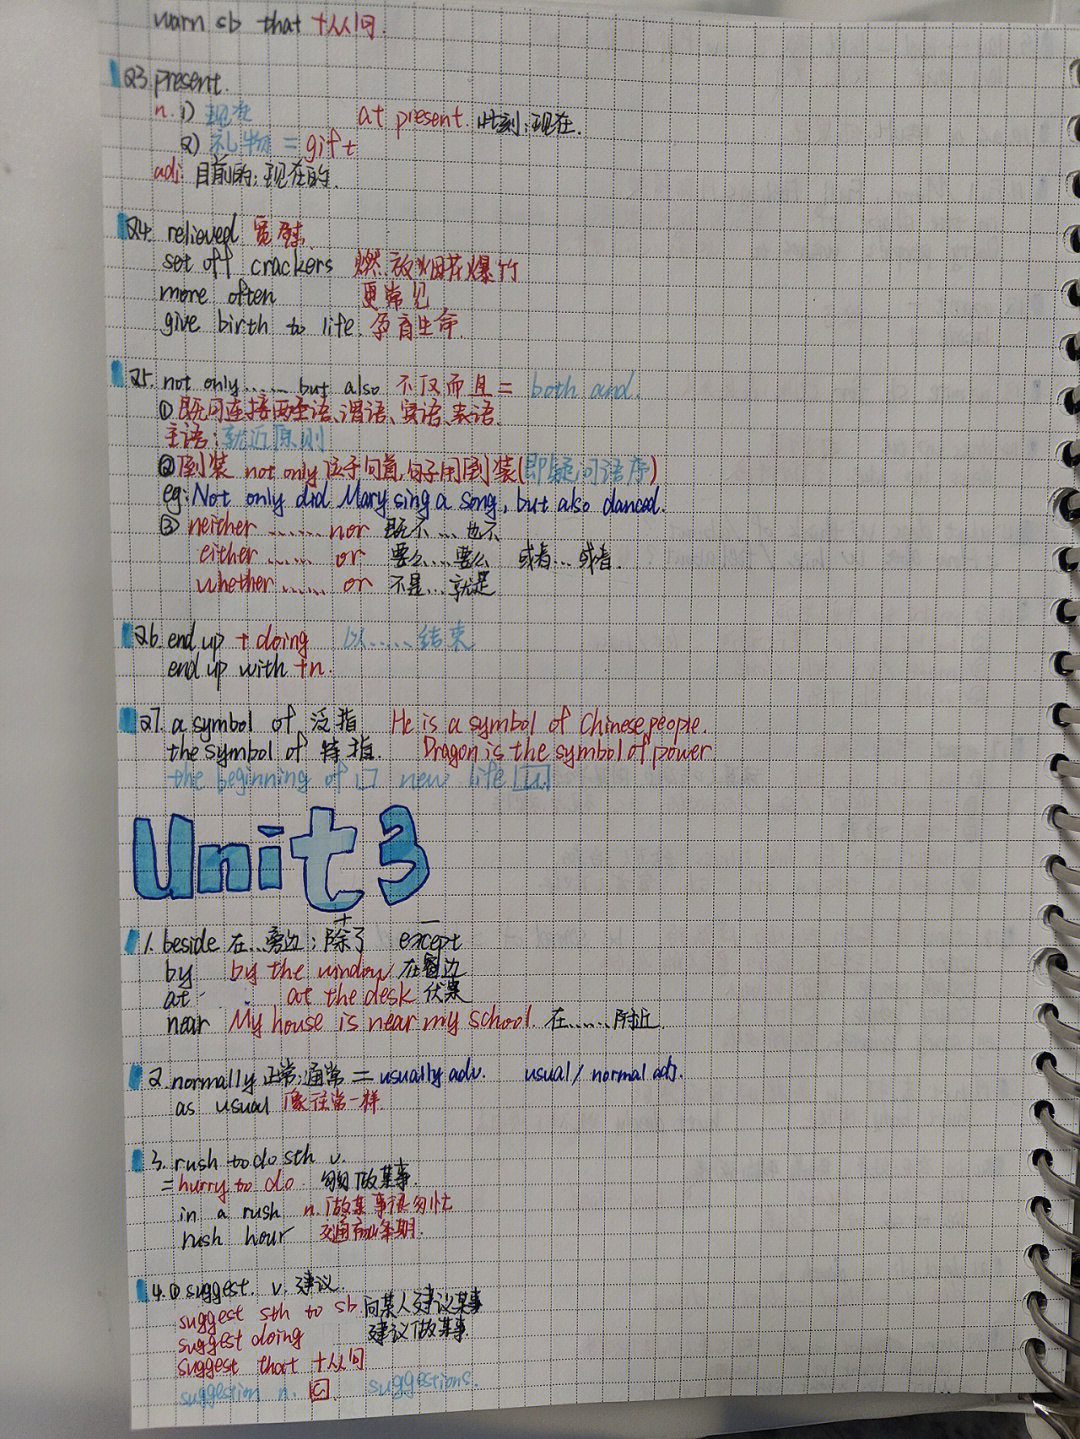 warn sb that +从句.
23. present.
n. 1) 现在 at present. 此刻;现在.
2) 礼物 = gift
adj. 目前的;现在的.
24. relieved 宽慰.
set off crackers 燃放烟花爆竹
more often 更常见
give birth to life. 孕育生命.
25. not only …… but also 不仅而且 = both and.
① 既可连接两主语、谓语、宾语、表语.
主语:就近原则
② 倒装 not only 位于句首,句子用倒装(即疑问语序)
eg: Not only did Mary sing a song, but also danced.
③ neither …… nor 既不…也不
either …… or 要么…要么 或者…或者.
whether …… or 不是…就是
26. end up + doing 以……结束
end up with +n.
27. a symbol of 泛指 He is a symbol of Chinese people.
the symbol of 特指. Dragon is the symbol of power
the beginning of □ new life [u.]
Unit 3
1. beside 在…旁边; 除了 + except −
by by the window 在窗边
at at the desk 伏案
near My house is near my school. 在……附近.
2. normally 正常;通常 = usually adv. usual / normal adj.
as usual 像往常一样
3. rush to do sth v.
= hurry to do 匆匆做某事
in a rush n. 做某事很匆忙
rush hour 交通高峰期.
4. ① suggest. v. 建议.
suggest sth to sb 向某人建议某事
suggest doing 建议做某事
suggest that +从句
suggestion n. [C] suggestions.